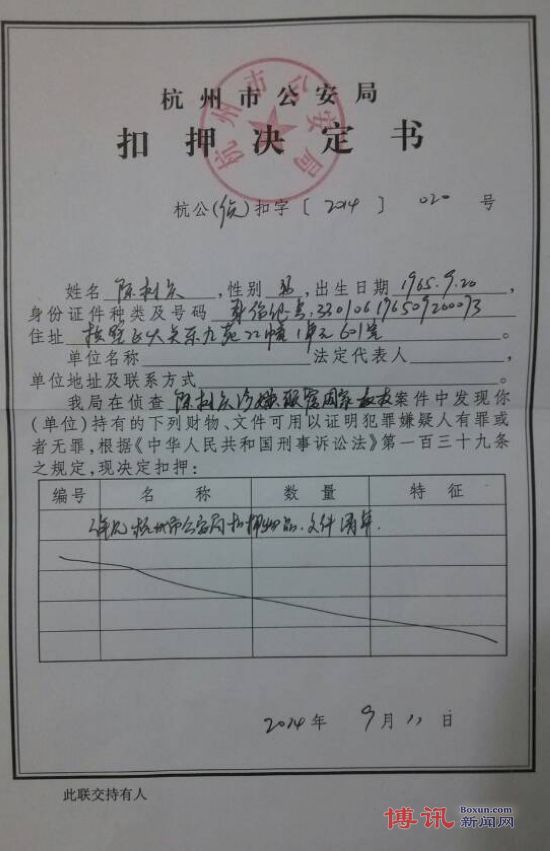 杭州市公安局
杭州市公安局
扣押决定书
杭公(侦)扣字[2014]020号
姓名陈树庆,性别男,出生日期1965.9.20,
身份证件种类及号码身份证号:330106196509200073
住址拱墅区大关东九苑22幢1单元601室。
单位名称 法定代表人,
单位地址及联系方式。
我局在侦查陈树庆涉嫌颠覆国家政权案件中发现你
(单位)持有的下列财物、文件可用以证明犯罪嫌疑人有罪或
者无罪,根据《中华人民共和国刑事诉讼法》第一百三十九条
之规定,现决定扣押:
编号 名称 数量 特征
详见杭州市公安局扣押物品、文件清单.
2014年9月11日
此联交持有人
博讯 Boxun.com
新闻网